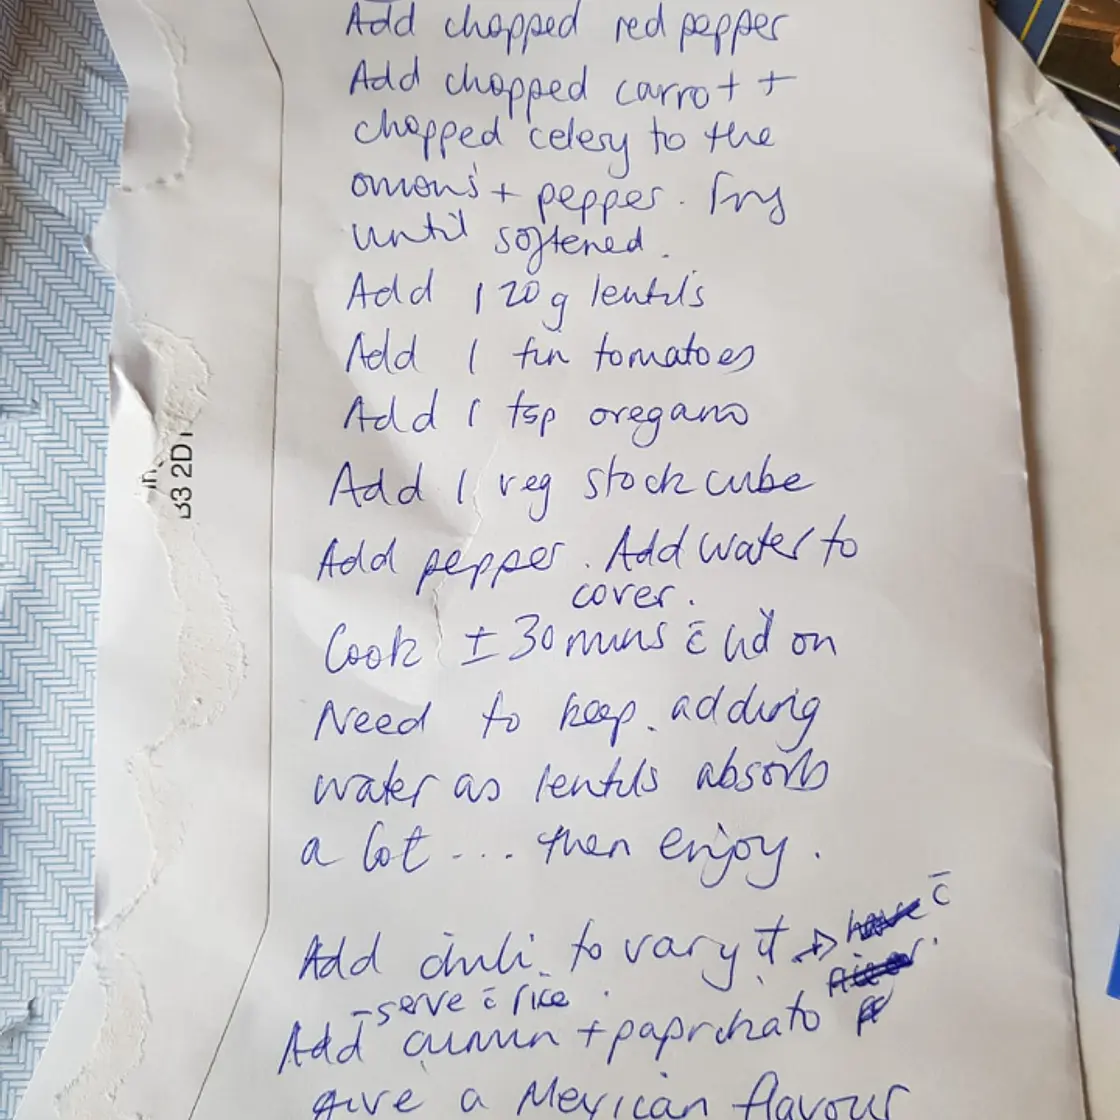 Add chopped red pepper
Add chopped carrot +
chopped celery to the
onions + pepper. Fry
until softened.
Add 120g lentils
Add 1 tin tomatoes
Add 1 tsp oregano
Add 1 veg stock cube
Add pepper. Add water to
cover.
Cook ± 30 mins c̄ lid on
Need to keep adding
water as lentils absorb
a lot ... then enjoy.
Add chili to vary it → c̄
- serve c̄ rice.
Add cumin + paprika to
give a Mexican flavour
B3 2D